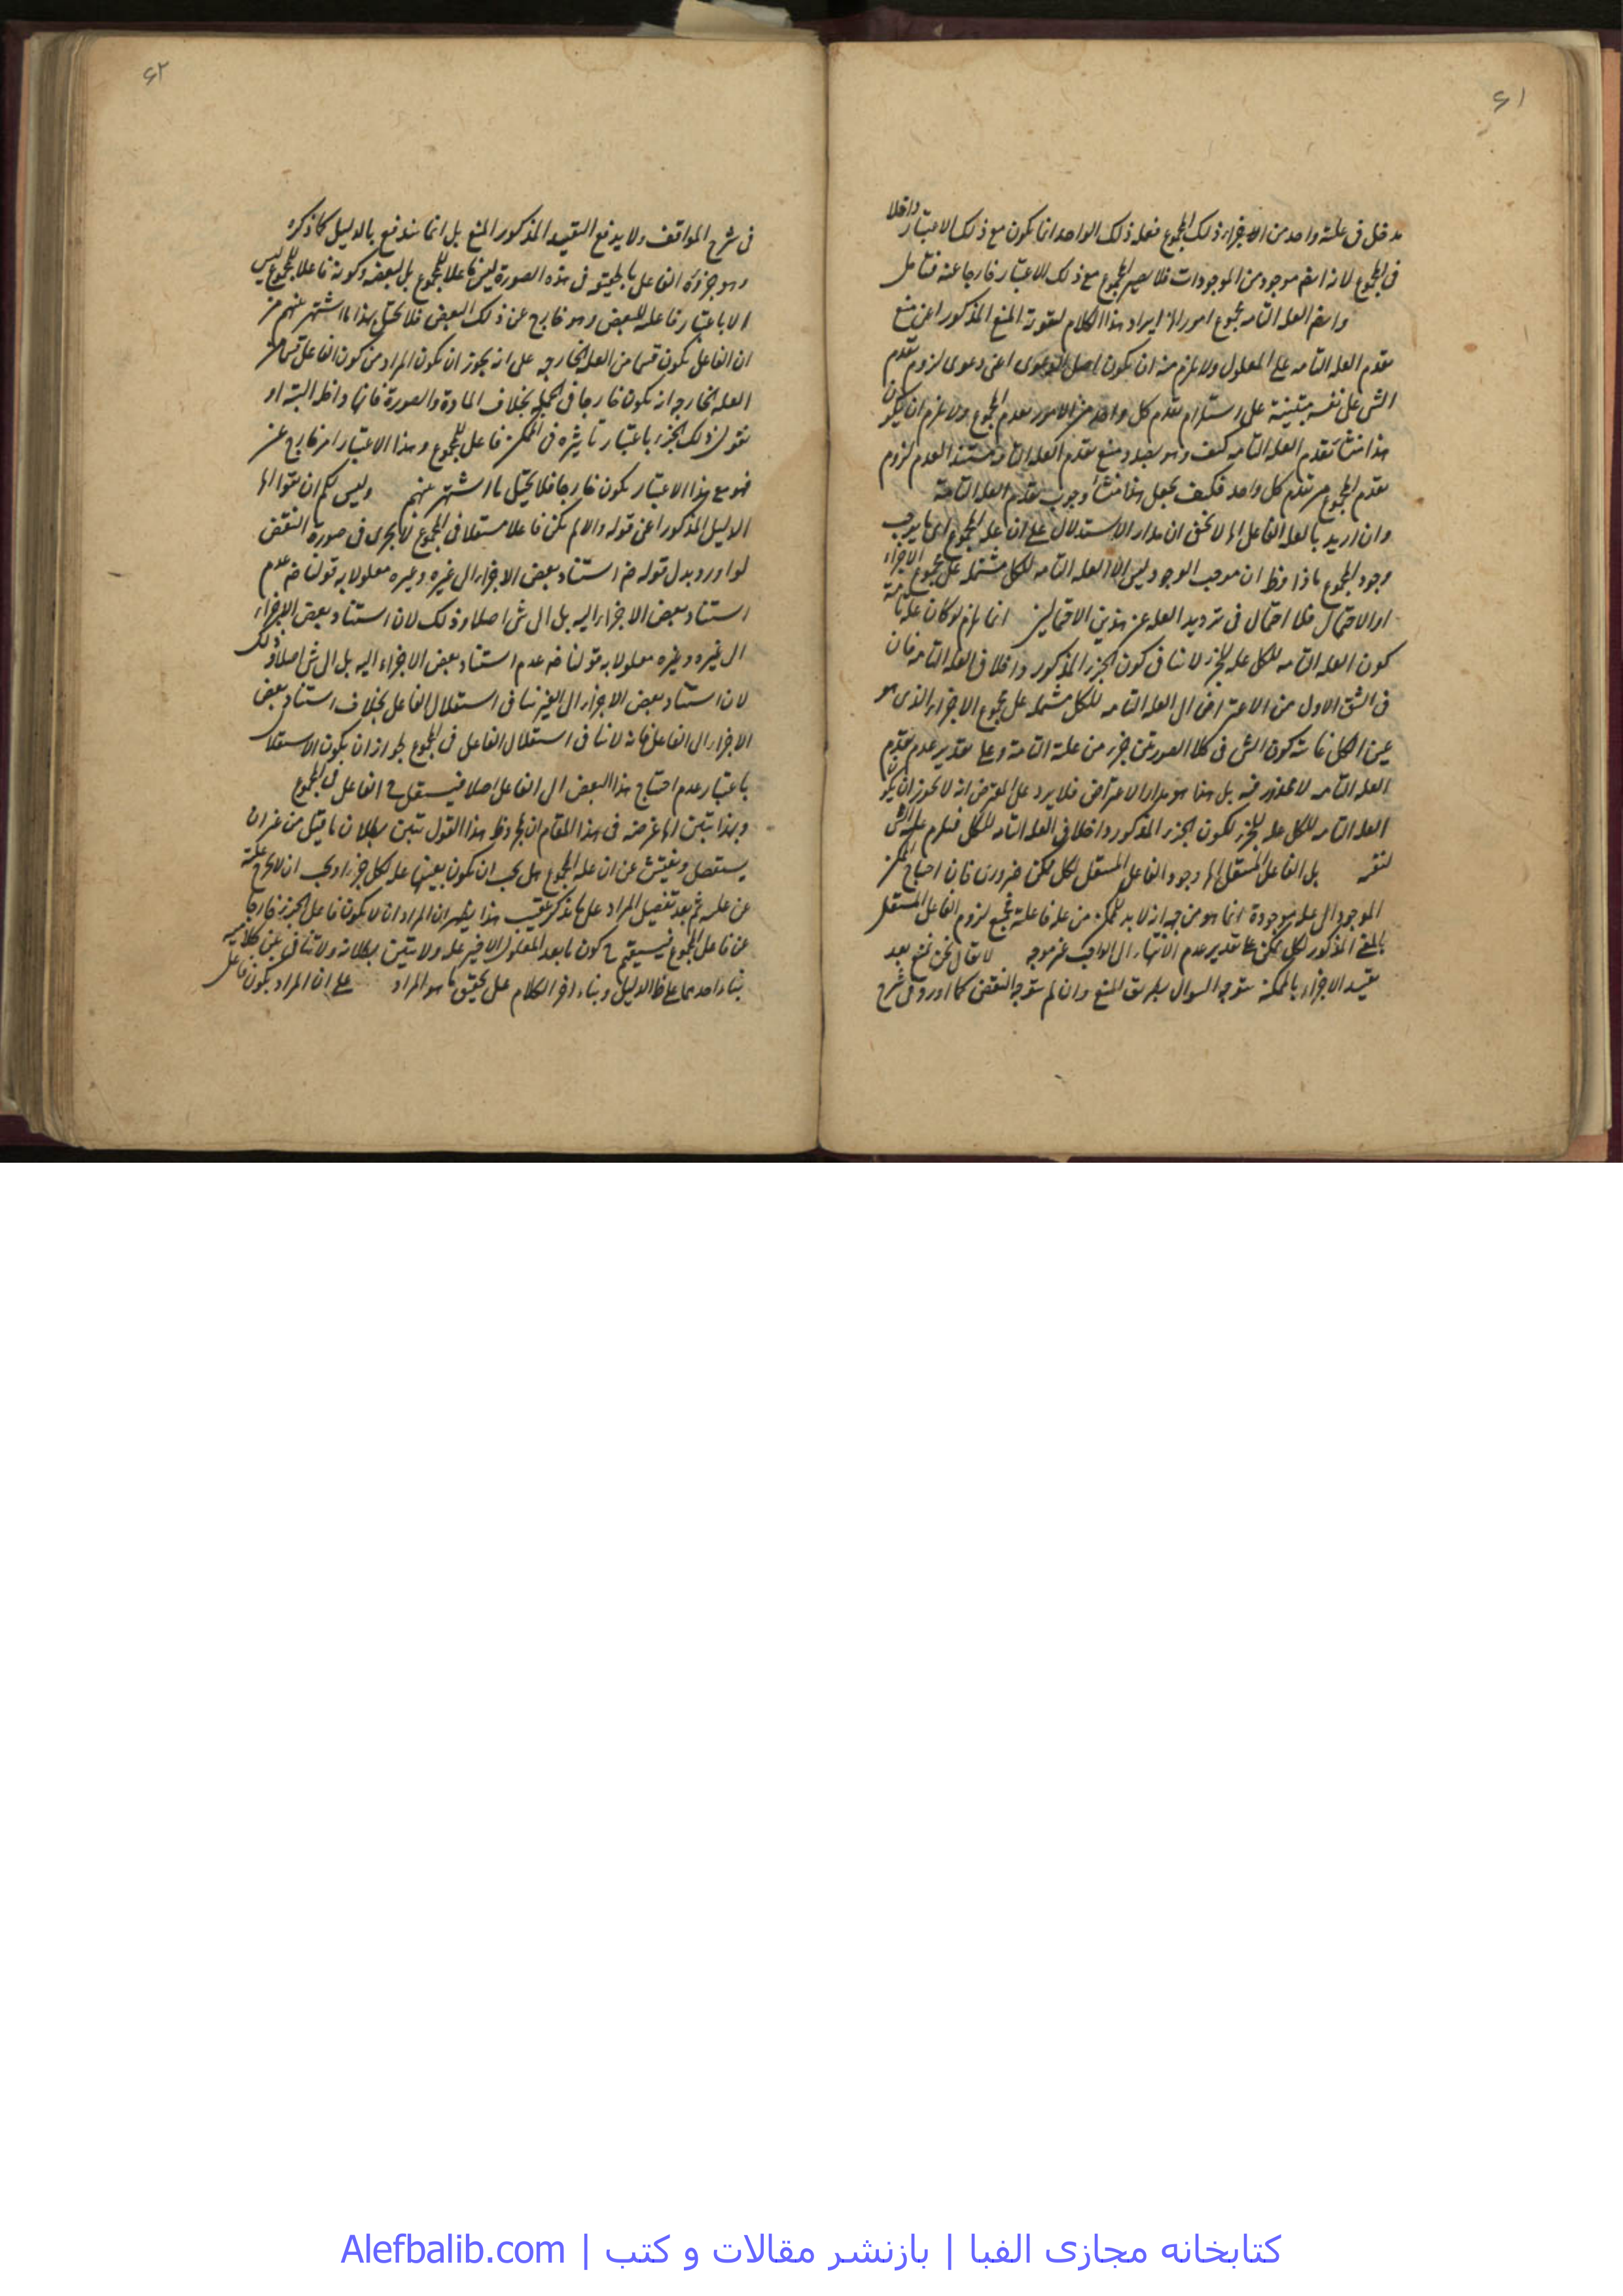 ۶۱
مدخل فی علیة واحد من الاجزاء ذلک المجموع فعلة ذلک الواحد انما یکون مع ذلک الاعتبار داخلا
فی المجموع لانه ایضا موجود من الموجودات فلا یصیر المجموع مع ذلک الاعتبار خارجا عنه فتأمل
وایضا العلة التامة مجموع امور الخ ایراد هذا الکلام لتقویة المنع المذکور اعنی منع
تقدم العلة التامة علی المعلول ولا یلزم منه ان یکون اصل الدعوی اعنی دعوی لزوم تقدم
الشی علی نفسه مبتنیة علی استلزام تقدم کل واحد من الامور تقدم المجموع ولا یلزم ان یکون
هذا منشأ تقدم العلة التامة کیف وهو بصدد منع تقدم العلة التامة مستندا لعدم لزوم
تقدم المجموع من تقدم کل واحد فکیف یجعل هذا منشأ وجوب تقدم العلة التامة
وان ارید بالعلة الفاعل الخ لا یخفی ان مدار الاستدلال علی ان علة المجموع ای ما یوجب
وجود المجموع ماذا وظ ان موجب الوجود لیس الا العلة التامة للکل مشتملة علی مجموع الاجزاء
او الاحتمال فلا احتمال فی تردید العلة عن هذین الاحتمالین انما یلزم لو کان علة تامة
کون العلة التامة للکل علة للجزء لا ینافی کون الجزء المذکور داخلا فی العلة التامة فان
فی الشق الاول من الاعتراض ان العلة التامة للکل مشتملة علی مجموع الاجزاء الذی هو
عین الکل غایته کون الشی فی کلا الصورتین جزء من علة التامة وعلی تقدیر عدم تقدم
العلة التامة لا محذور فیه بل هذا هو مدار الاعتراض فلا یرد علی المعترض انه لا یجوز ان یکون
العلة التامة للکل علة للجزء لکون الجزء المذکور داخلا فی العلة التامة للکل فیلزم علیة الشی
لنفسه بل الفاعل المستقل الخ وجود الفاعل المستقل لکل ممکن ضروری فان احتیاج الممکن
الموجود الی علة موجودة انما هو من جهة انه لا بد للممکن من علة فاعلة فمع لزوم الفاعل المستقل
بالمعنی المذکور لکل ممکن علی تقدیر عدم الانتهاء الی الواجب غیر موجه لا یقال نحن نمنع بعد
تقیید الاجزاء بالممکنة یتوجه السوال بطریق المنع وان لم یتوجه النقض کما اورد فی شرح
۶۲
فی شرح المواقف ولا یدفع التقیید المذکور المنع بل انما یندفع بالدلیل کما ذکره
وهو جزؤه الفاعل بالحقیقة فی هذه الصورة لیس فاعلا للمجموع بل لبعضه وکونه فاعلا للمجموع لیس
الا باعتبار فاعلیة للبعض وهو خارج عن ذلک البعض فلا یختل بهذا ما اشتهر عنهم من
ان الفاعل یکون قسما من العلة الخارجة علی انه یجوز ان یکون المراد من کون الفاعل قسما من
العلة الخارجة انه یکون خارجا فی الجملة بخلاف المادة والصورة فانها داخلة البتة او
نقول ذلک الجزء باعتبار تأثیره فی الممکن فاعل للمجموع وهذا الاعتبار امر خارج عن
فهو مع هذا الاعتبار یکون خارجا فلا یختل ما اشتهر عنهم ولیس لکم ان تقولوا الخ
الدلیل المذکور اعنی قوله والا لم یکن فاعلا مستقلا فی المجموع لا یجری فی صورة النقض
لو اورد بدل قوله ضم استناد بعض الاجزاء الی غیره وغیره معلولا به قولنا ضم عدم
استناد بعض الاجزاء الیه بل الی شی اصلا وذلک لان استناد بعض الاجزاء
الی غیره وغیره معلولا به قولنا ضم عدم استناد بعض الاجزاء الیه بل الی شی اصلا وذلک
لان استناد بعض الاجزاء الی الغیر ینافی استقلال الفاعل بخلاف استناد بعض
الاجزاء الی الفاعل فانه لا ینافی استقلال الفاعل فی المجموع لجواز ان یکون الاستقلال
باعتبار عدم احتیاج هذا البعض الی الفاعل اصلا فیستقل ح الفاعل فی المجموع
وبهذا تبین الخ غرضه فی هذا المقام ان بملاحظة هذا القول تبین بطلان ما قیل من غیر ان
یستفصل ویفتش عن ان علة المجموع هل یجب ان یکون بعینها علة لکل جزء او یجب ان لا یخرج علته
عن علته ثم بعد تفصیل المراد علی ما یذکر عقیب هذا یظهر ان المراد ان لا یکون فاعل الجزء خارجا
عن فاعل المجموع فیستقیم ح کون ما بعد المعلول الاخیر علة ولا یتبین بطلانه ولا تنافی بین کلامیه
بناء احدهما علی ظ الدلیل وبناء اخر الکلام علی تحقیق ما هو المراد علی ان المراد بکون فاعل
کتابخانه مجازی الفبا | بازنشر مقالات و کتب | Alefbalib.com